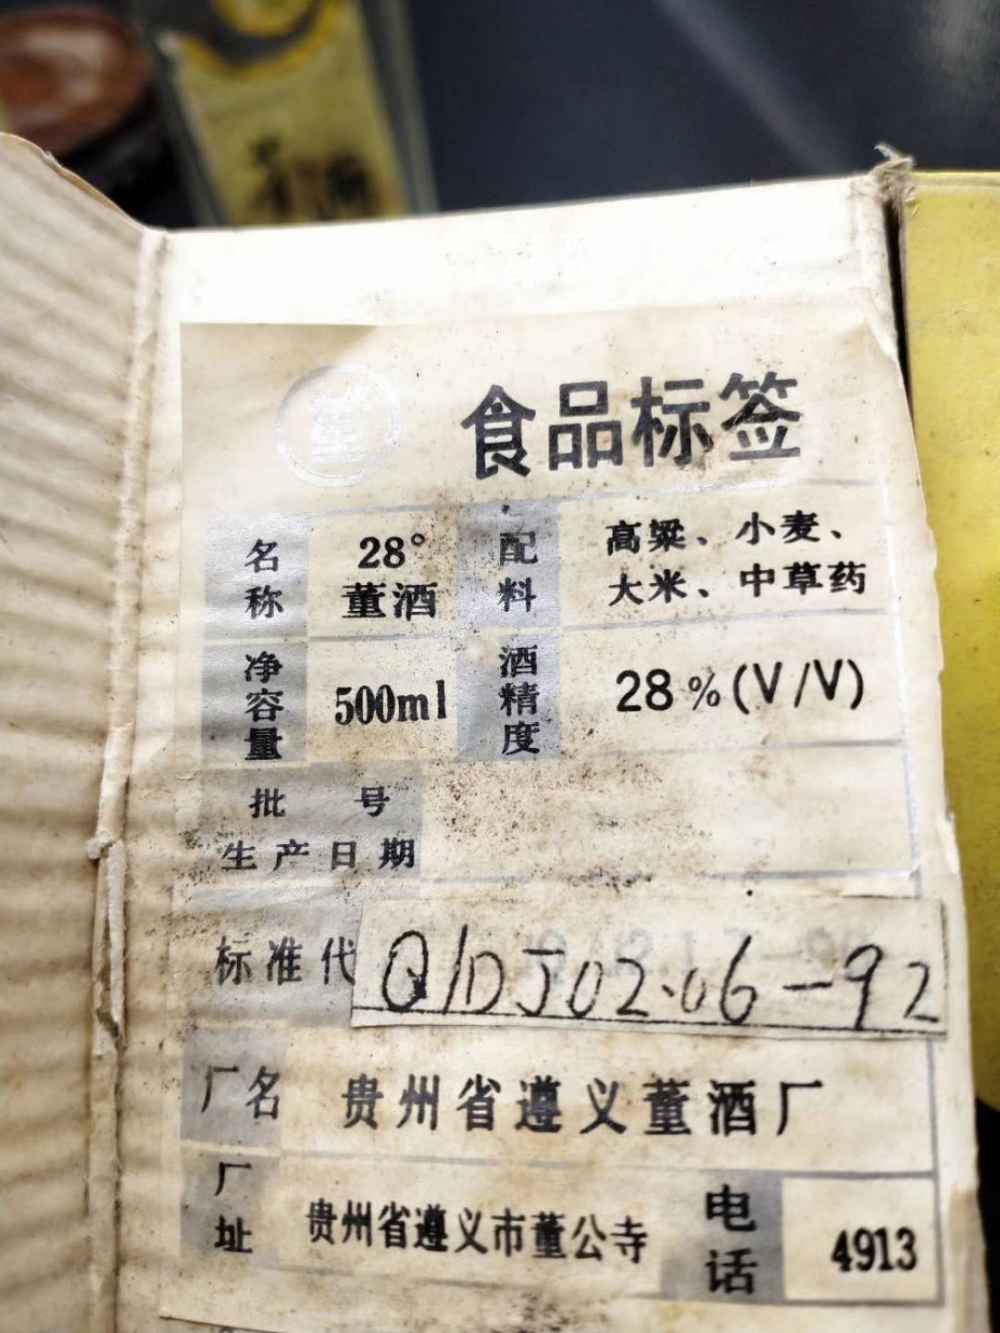 食品标签
名称 28° 董酒
配料 高粱、小麦、大米、中草药
净容量 500ml
酒精度 28%(V/V)
批号
生产日期
标准代 Q/DJ02.06-92
厂名 贵州省遵义董酒厂
厂址 贵州省遵义市董公寺
电话 4913